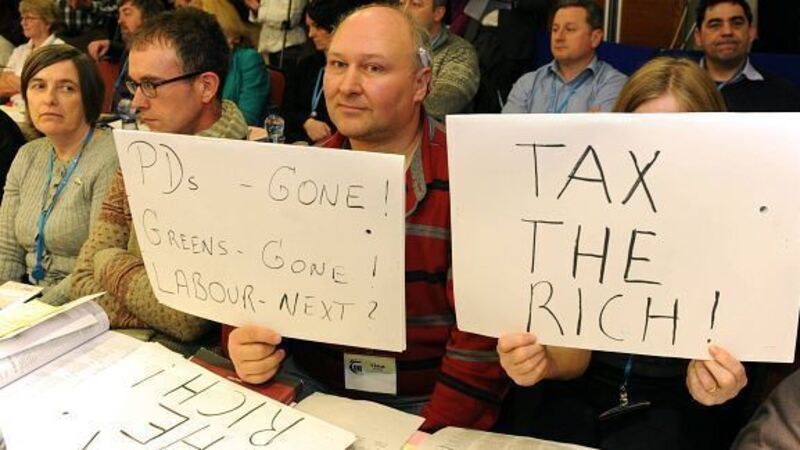 PDs - GONE!
GREENS - GONE!
LABOUR - NEXT?
TAX
THE
RICH!
THE
RICH!